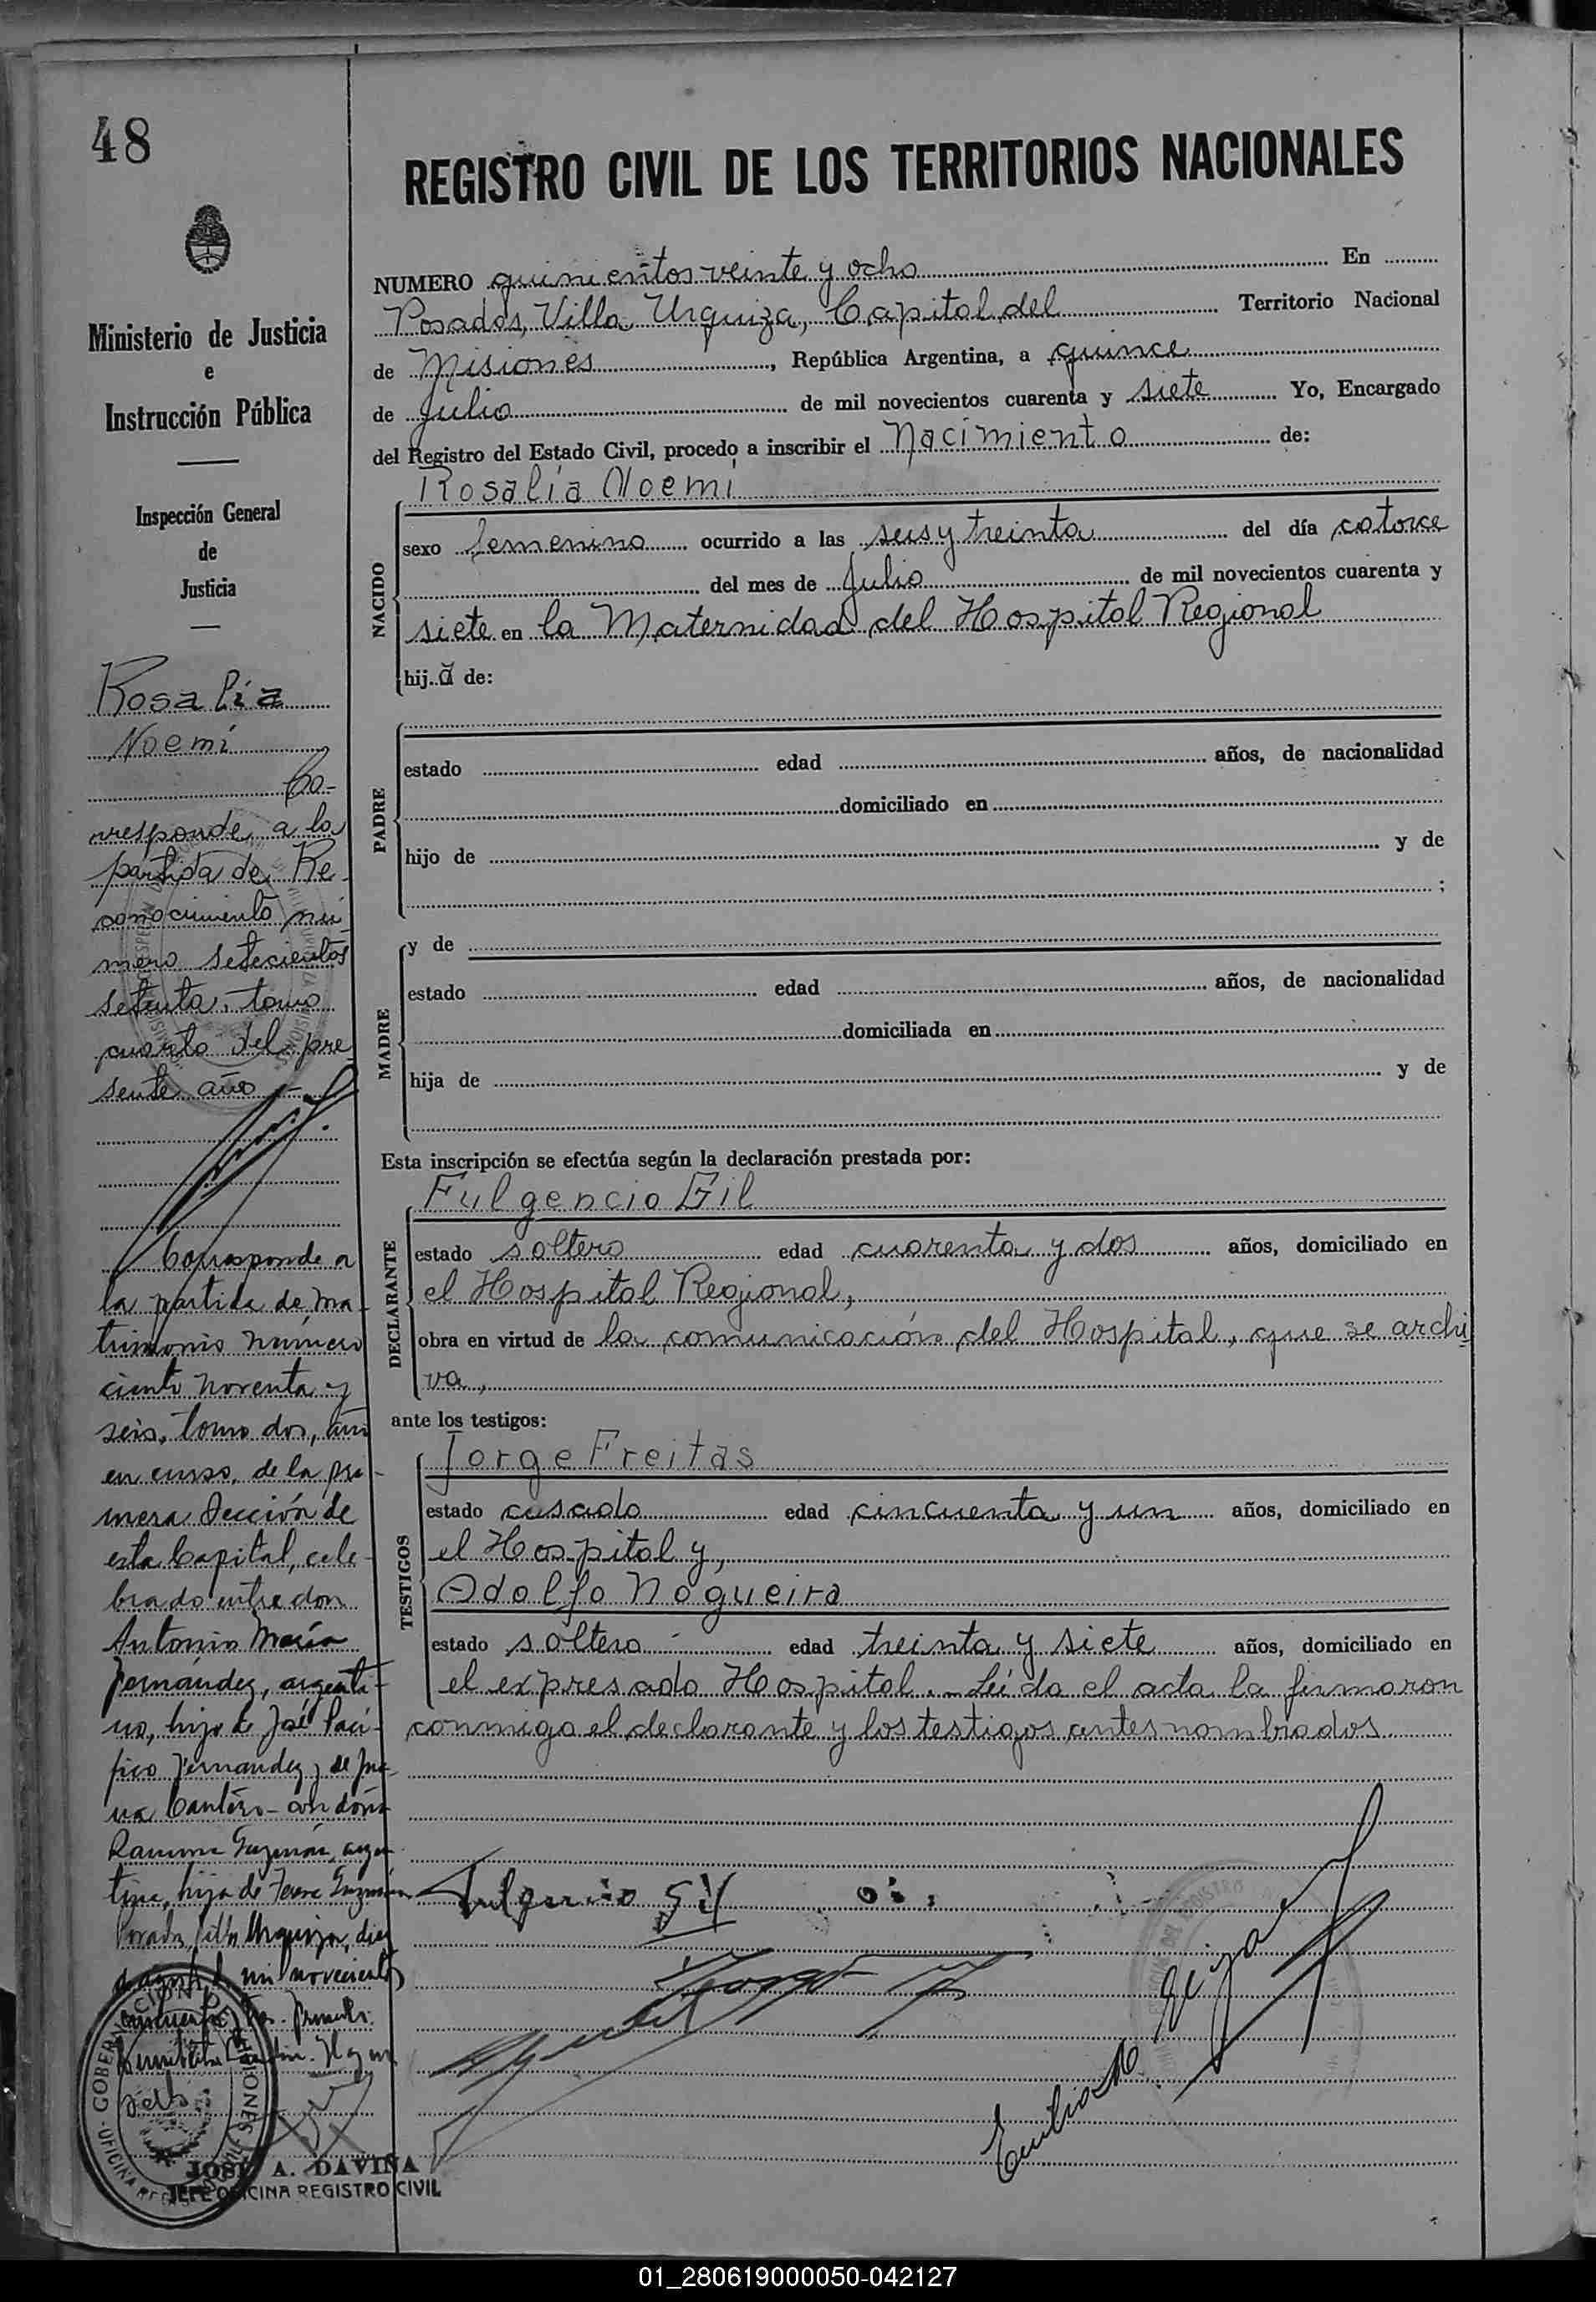 48
Ministerio de Justicia
e
Instrucción Pública
Inspección General
de
Justicia
Rosalia
Noemi
Co-
rresponde a la
partida de Re-
conocimiento nú-
mero setecientos
setenta, tomo
cuarto del pre-
sente año
Corresponde a
la partida de ma-
trimonio número
ciento noventa y
seis, tomo dos, año
en curso, de la pri-
mera Sección de
esta Capital, cele-
brado entre don
Antonio María
Fernández, argenti-
no, hijo de José Pací-
fico Fernandez y de Jua-
na Cantero - con doña
Ramona Guzmán, argen-
tina, hija de Guzmán
Posadas, Villa Urquiza, diez
de mil novecientos
cincuenta
GOBERNACION DE MISIONES
OFICINA REGISTRO CIVIL
JOSE A. DAVIÑA
JEFE OFICINA REGISTRO CIVIL
REGISTRO CIVIL DE LOS TERRITORIOS NACIONALES
NUMERO quinientos veinte y ocho En
Posadas, Villa Urquiza, Capital del Territorio Nacional
de Misiones, República Argentina, a quince
de Julio de mil novecientos cuarenta y siete Yo, Encargado
del Registro del Estado Civil, procedo a inscribir el Nacimiento de:
NACIDO
Rosalia Noemi
sexo femenino ocurrido a las seis y treinta del día catorce
del mes de Julio de mil novecientos cuarenta y
siete en la Maternidad del Hospital Regional
hij a de:
PADRE
estado edad años, de nacionalidad
domiciliado en
hijo de y de
;
MADRE
y de
estado edad años, de nacionalidad
domiciliada en
hija de y de
Esta inscripción se efectúa según la declaración prestada por:
DECLARANTE
Fulgencio Gil
estado soltero edad cuarenta y dos años, domiciliado en
el Hospital Regional,
obra en virtud de la comunicación del Hospital, que se archi
va,
ante los testigos:
TESTIGOS
Jorge Freitas
estado casado edad cincuenta y un años, domiciliado en
el Hospital y,
Adolfo Nogueira
estado soltero edad treinta y siete años, domiciliado en
el expresado Hospital.- Leida el acta la firmaron
conmigo el declarante y los testigos antes nombrados
Fulgencio Gil
01_280619000050-042127